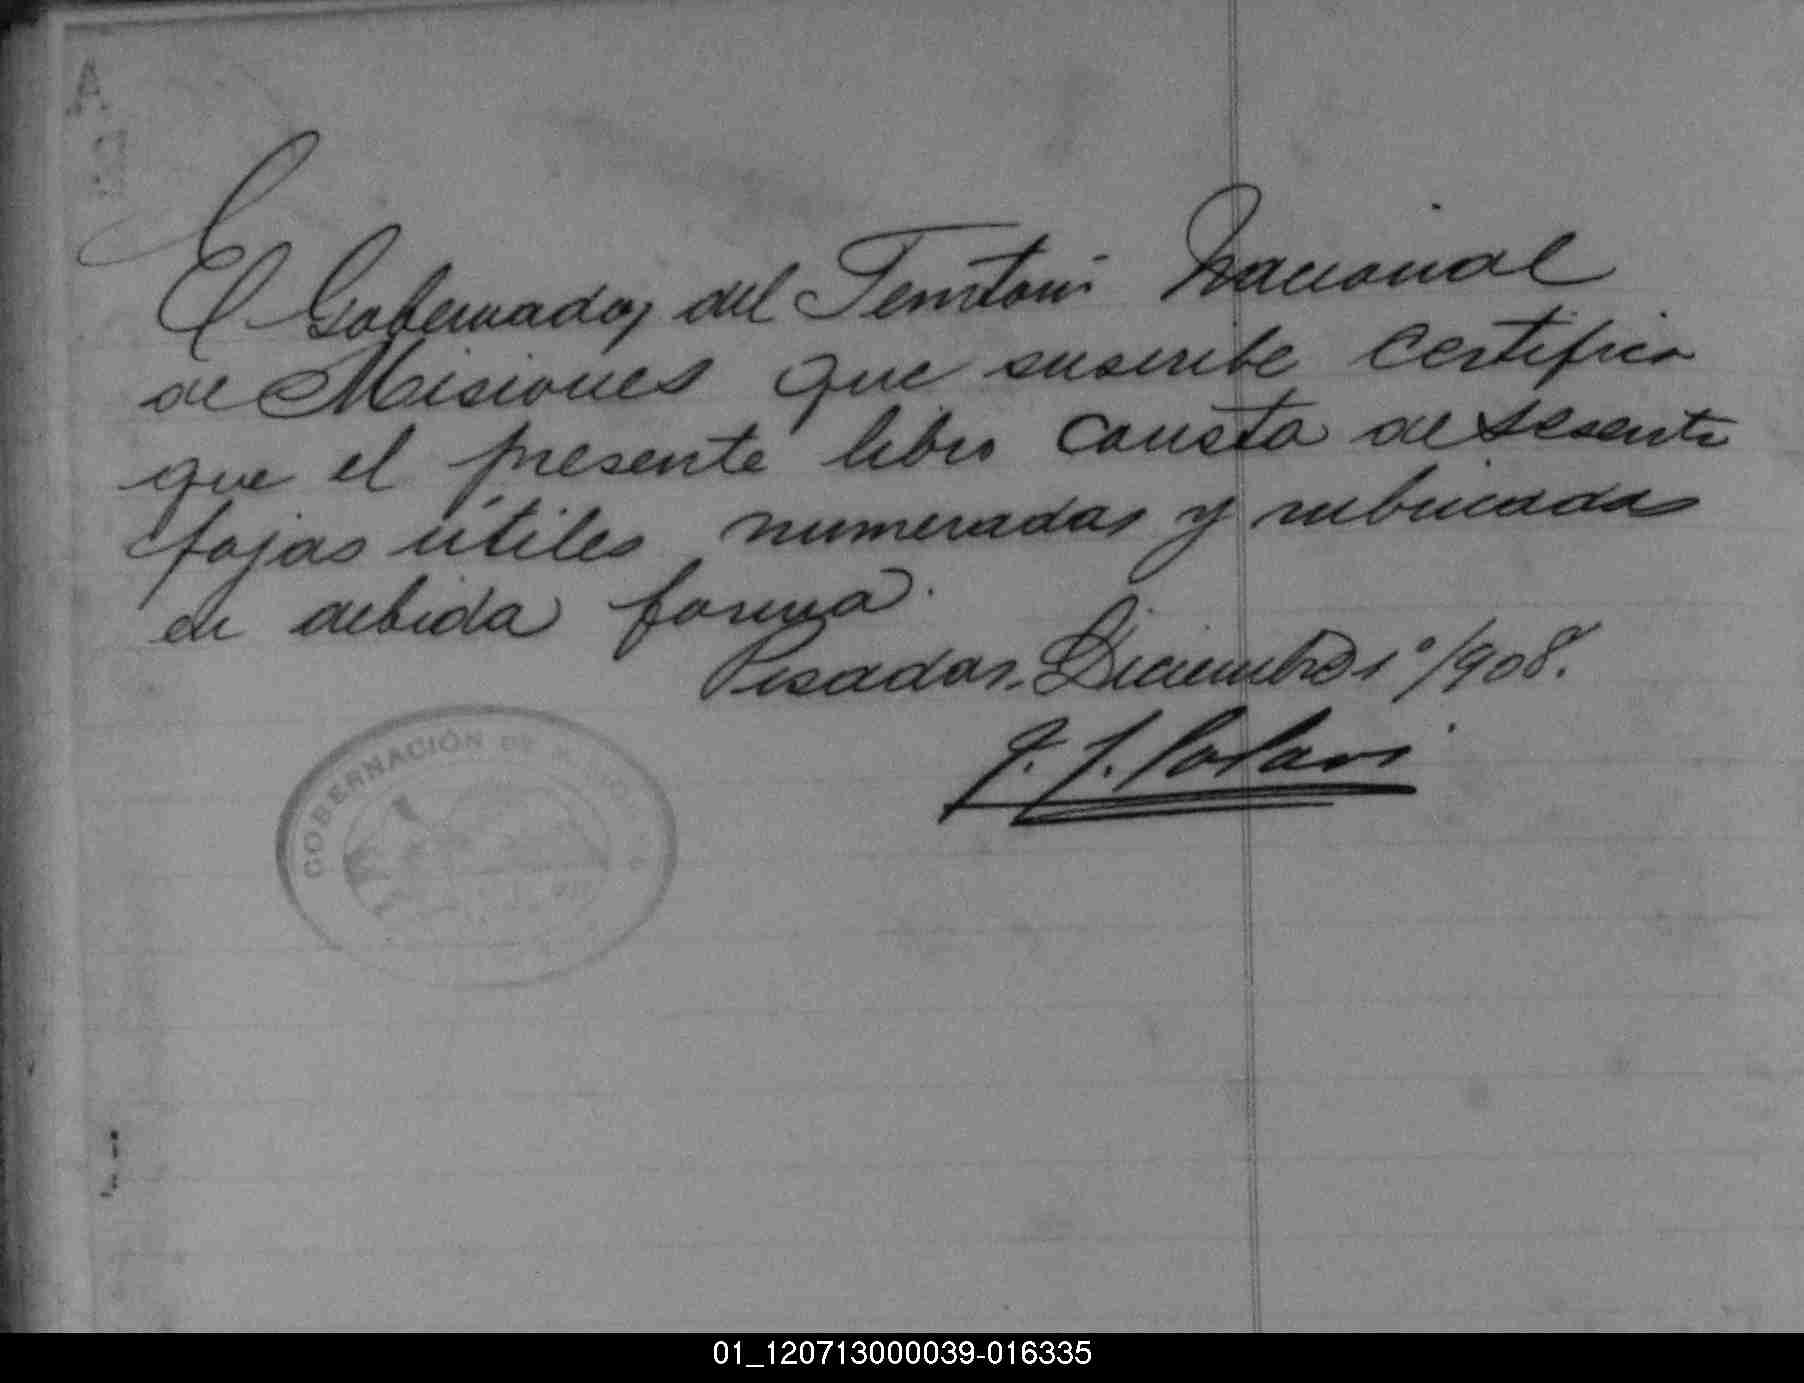 El Gobernador del Territorio Nacional
de Misiones que suscribe certifica
que el presente libro consta de sesenta
fojas útiles numeradas y rubricadas
en debida forma.
Posadas, Diciembre 1º/908.
J. J. Lanari
GOBERNACIÓN DE MISIONES
01_120713000039-016335